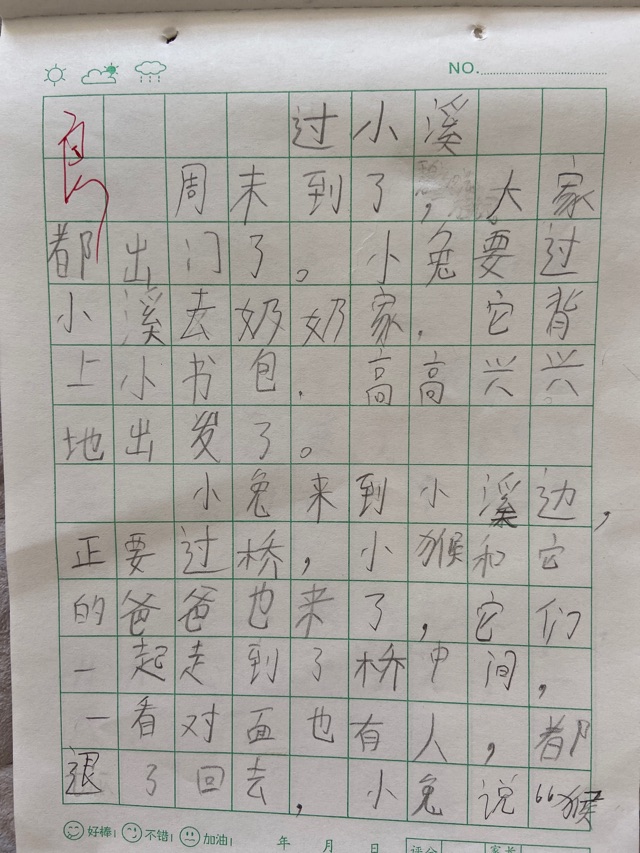 NO.
过小溪
良
周末到了，大家
都出门了。小兔要过
小溪去奶奶家. 它背
上小书包. 高高兴兴
地出发了。
小兔来到小溪边，
正要过桥，小猴和它
的爸爸也来了，它们
一起走到了桥中间，
一看对面也有人，都
退了回去，小兔说“猴
好棒! 不错! 加油! 年 月 日 评分 家长